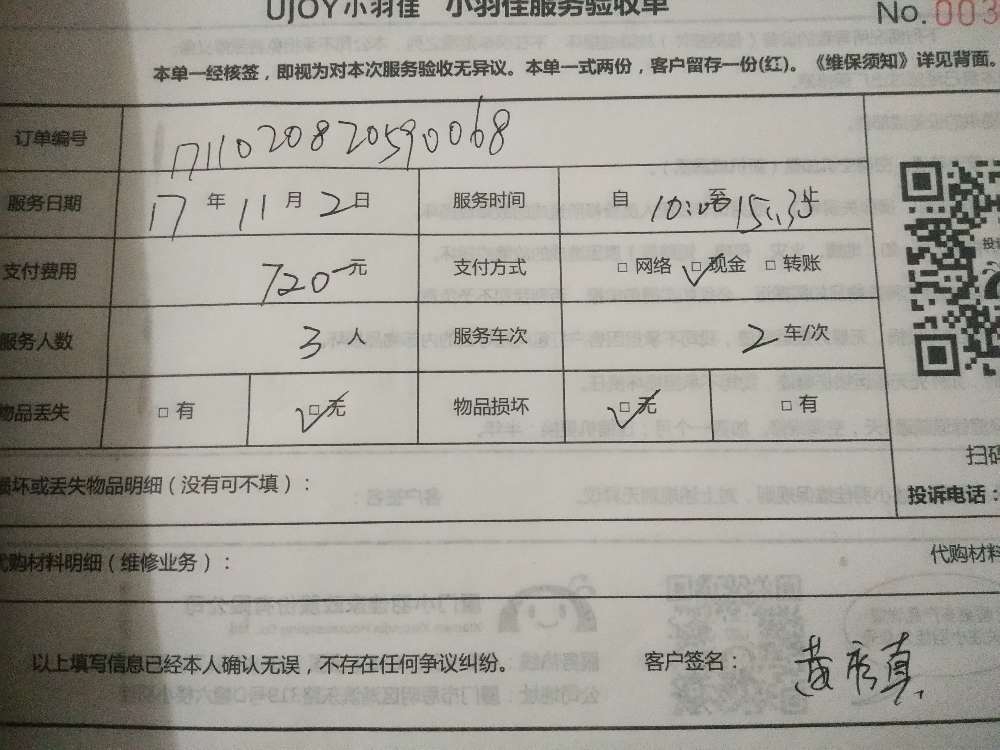 UJOY小羽佳 小羽佳服务验收单
No. 003
本单一经核签，即视为对本次服务验收无异议。本单一式两份，客户留存一份(红)。《维保须知》详见背面。
订单编号 1711020820590068
服务日期 17 年 11 月 2 日 服务时间 自 10:00 至 15:35 止
支付费用 720 元 支付方式 □ 网络 ☑ 现金 □ 转账
服务人数 3 人 服务车次 2 车/次
物品丢失 □ 有 ☑ 无 物品损坏 ☑ 无 □ 有
扫码
损坏或丢失物品明细（没有可不填）：
投诉电话：
代购材料明细（维修业务）：
代购材料
以上填写信息已经本人确认无误，不存在任何争议纠纷。 客户签名：